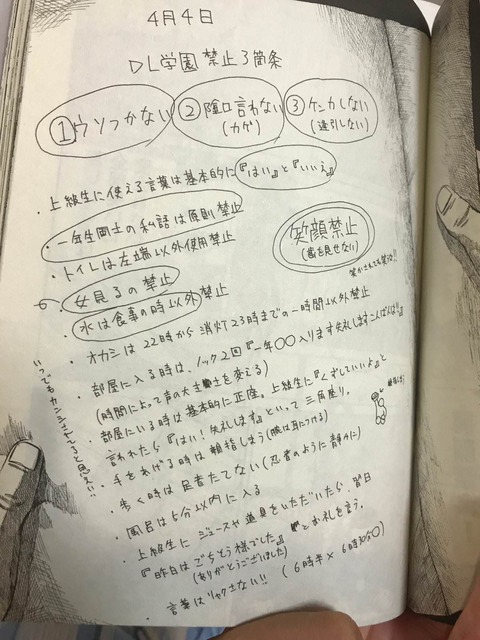 4月4日
DL学園 禁止3箇条
①ウソつかない ②陰口言わない ③ケンカしない
(カゲ) (逢引しない)
・上級生に使える言葉は基本的に『はい』と『いいえ』
・一年生同士の私語は原則禁止
・トイレは左端以外使用禁止
笑顔禁止
(歯を見せない)
笑かされても禁止!!
・女見るの禁止
・水は食事の時以外禁止
・オカシは22時から消灯23時までの一時間以外禁止
・部屋に入る時は、ノック2回『一年〇〇入ります失礼しますこんばんは!!』
(時間によって声の大きさを変える)
・部屋にいる時は基本的に正座。上級生に『くずしていいよ』と
言われたら『はい!失礼します』といって三角座り。
・手をあげる時は 親指しまう(腕は耳につける)
・歩く時は足音たてない(忍者のように静かに)
・風呂は5分以内に入る
・上級生に ジュースや道具をいただいたら、翌日
『昨日はごちそう様でした』とお礼を言う。
(ありがとうございました)
・言葉はリャクさない!! (6時半× 6時30分〇)
いつでもカンシされてると思え!!